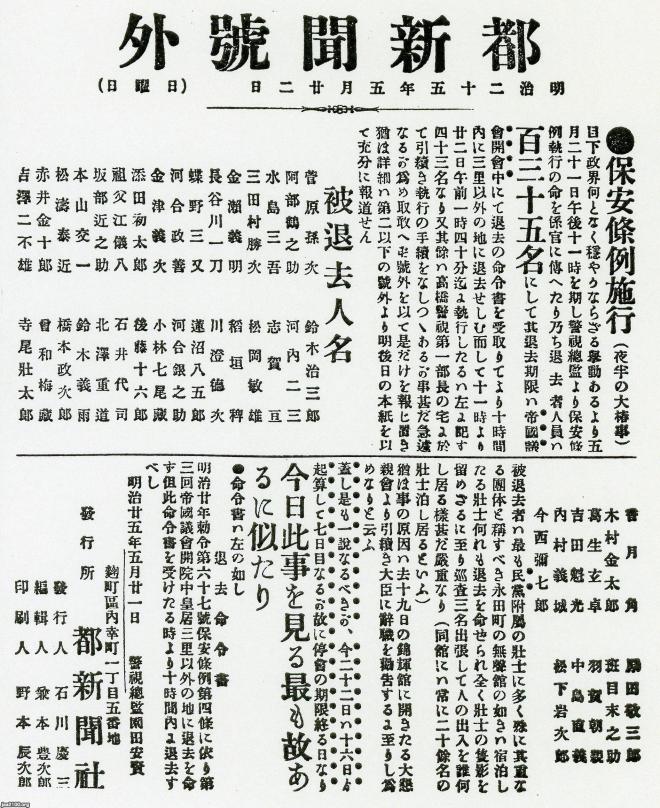 都新聞號外
明治二十五年五月廿二日（日曜日）
●保安條例施行（夜半の大椿事）
目下政界何となく穩やかならざる擧動あるより五
月二十一日午後十一時を期し警視總監より保安條
例執行の命を係官に傳へたり乃ち退去者人員ハ
百三十五名にして其退去期限ハ帝國議
會開會中にて退去の命令書を受取りてより十時間
內に三里以外の地に退去せしむ而して十一時より
廿二日午前一時四十分迄ま執行したるハ左ま記す
四十三名なり又其餘ハ高橋警視第一部長の宅ま於
て引續き執行の手續をなしつゝあるお事甚だ急遽
なるお爲め取敢へも號外を以て是だけを報じ置き
猶は詳細ハ第二以下の號外より明後日の本紙を以
て充分に報道せん
被退去人名
菅原孫次　鈴木治三郎
阿部鶴之助　河內二三
水島三吾　志賀亘
三田村勝次　松岡敏雄
金瀬義明　稻垣稗
長谷川一刀　川澄德次
蝶野三又　蓮沼八五郎
河合政善　河合銀之助
金津義次　小林七尾藏
添田初太郎　後藤十六郎
祖父江儀八　石井代司
坂部近之助　北澤重道
本山交一　鈴木義雨
松濤泰近　橋本政次郎
赤井金十郎　曾和梅藏
吉澤二不雄　寺尾壯太郎
菅月角　勝田敬三郎
木村金太郎　班目末之助
葛生玄卓　羽賀朝親
吉田魁光　中島直義
內村義城　松下岩次郎
今西彌七郎
被退去者ハ最も民黨附屬の壯士に多く殊に其重な
る團体と稱すべき永田町の無聲館の如きハ宿泊し
たる壯士何れも退去を命せられ全く壯士の隻影を
留めざるに至り巡査三名出張して人の出入を誰何
し居る樣甚だ嚴重なり（同館にハ常に二十餘名の
壯士泊し居るといふ）
猶は事の原因ハ去十九日の錦輝館に開きたる大懇
親會より引續き大臣に辭職を勸吿するま至りし爲
めなりと云ふ
蓋し是も一說なるべきお、今二十二日ハ十六日より
起算して七日目なるお故に停會の期限終る日なり
今日此事を見る最も故あ
るに似たり
●命令書ハ左の如し
退去命令書
明治廿年勅令第六十七號保安條例第四條に依り第
三回帝國議會開院中皇居三里以外の地に退去を命
す但此命令書を受けたる時より十時間內ま退去す
べし
明治廿五年五月廿一日　警視總監園田安賢
麹町區內幸町一丁目五番地
發行所　都新聞社
發行人　石川慶三
編輯人　兼本豊次郎
印刷人　野本辰次郎